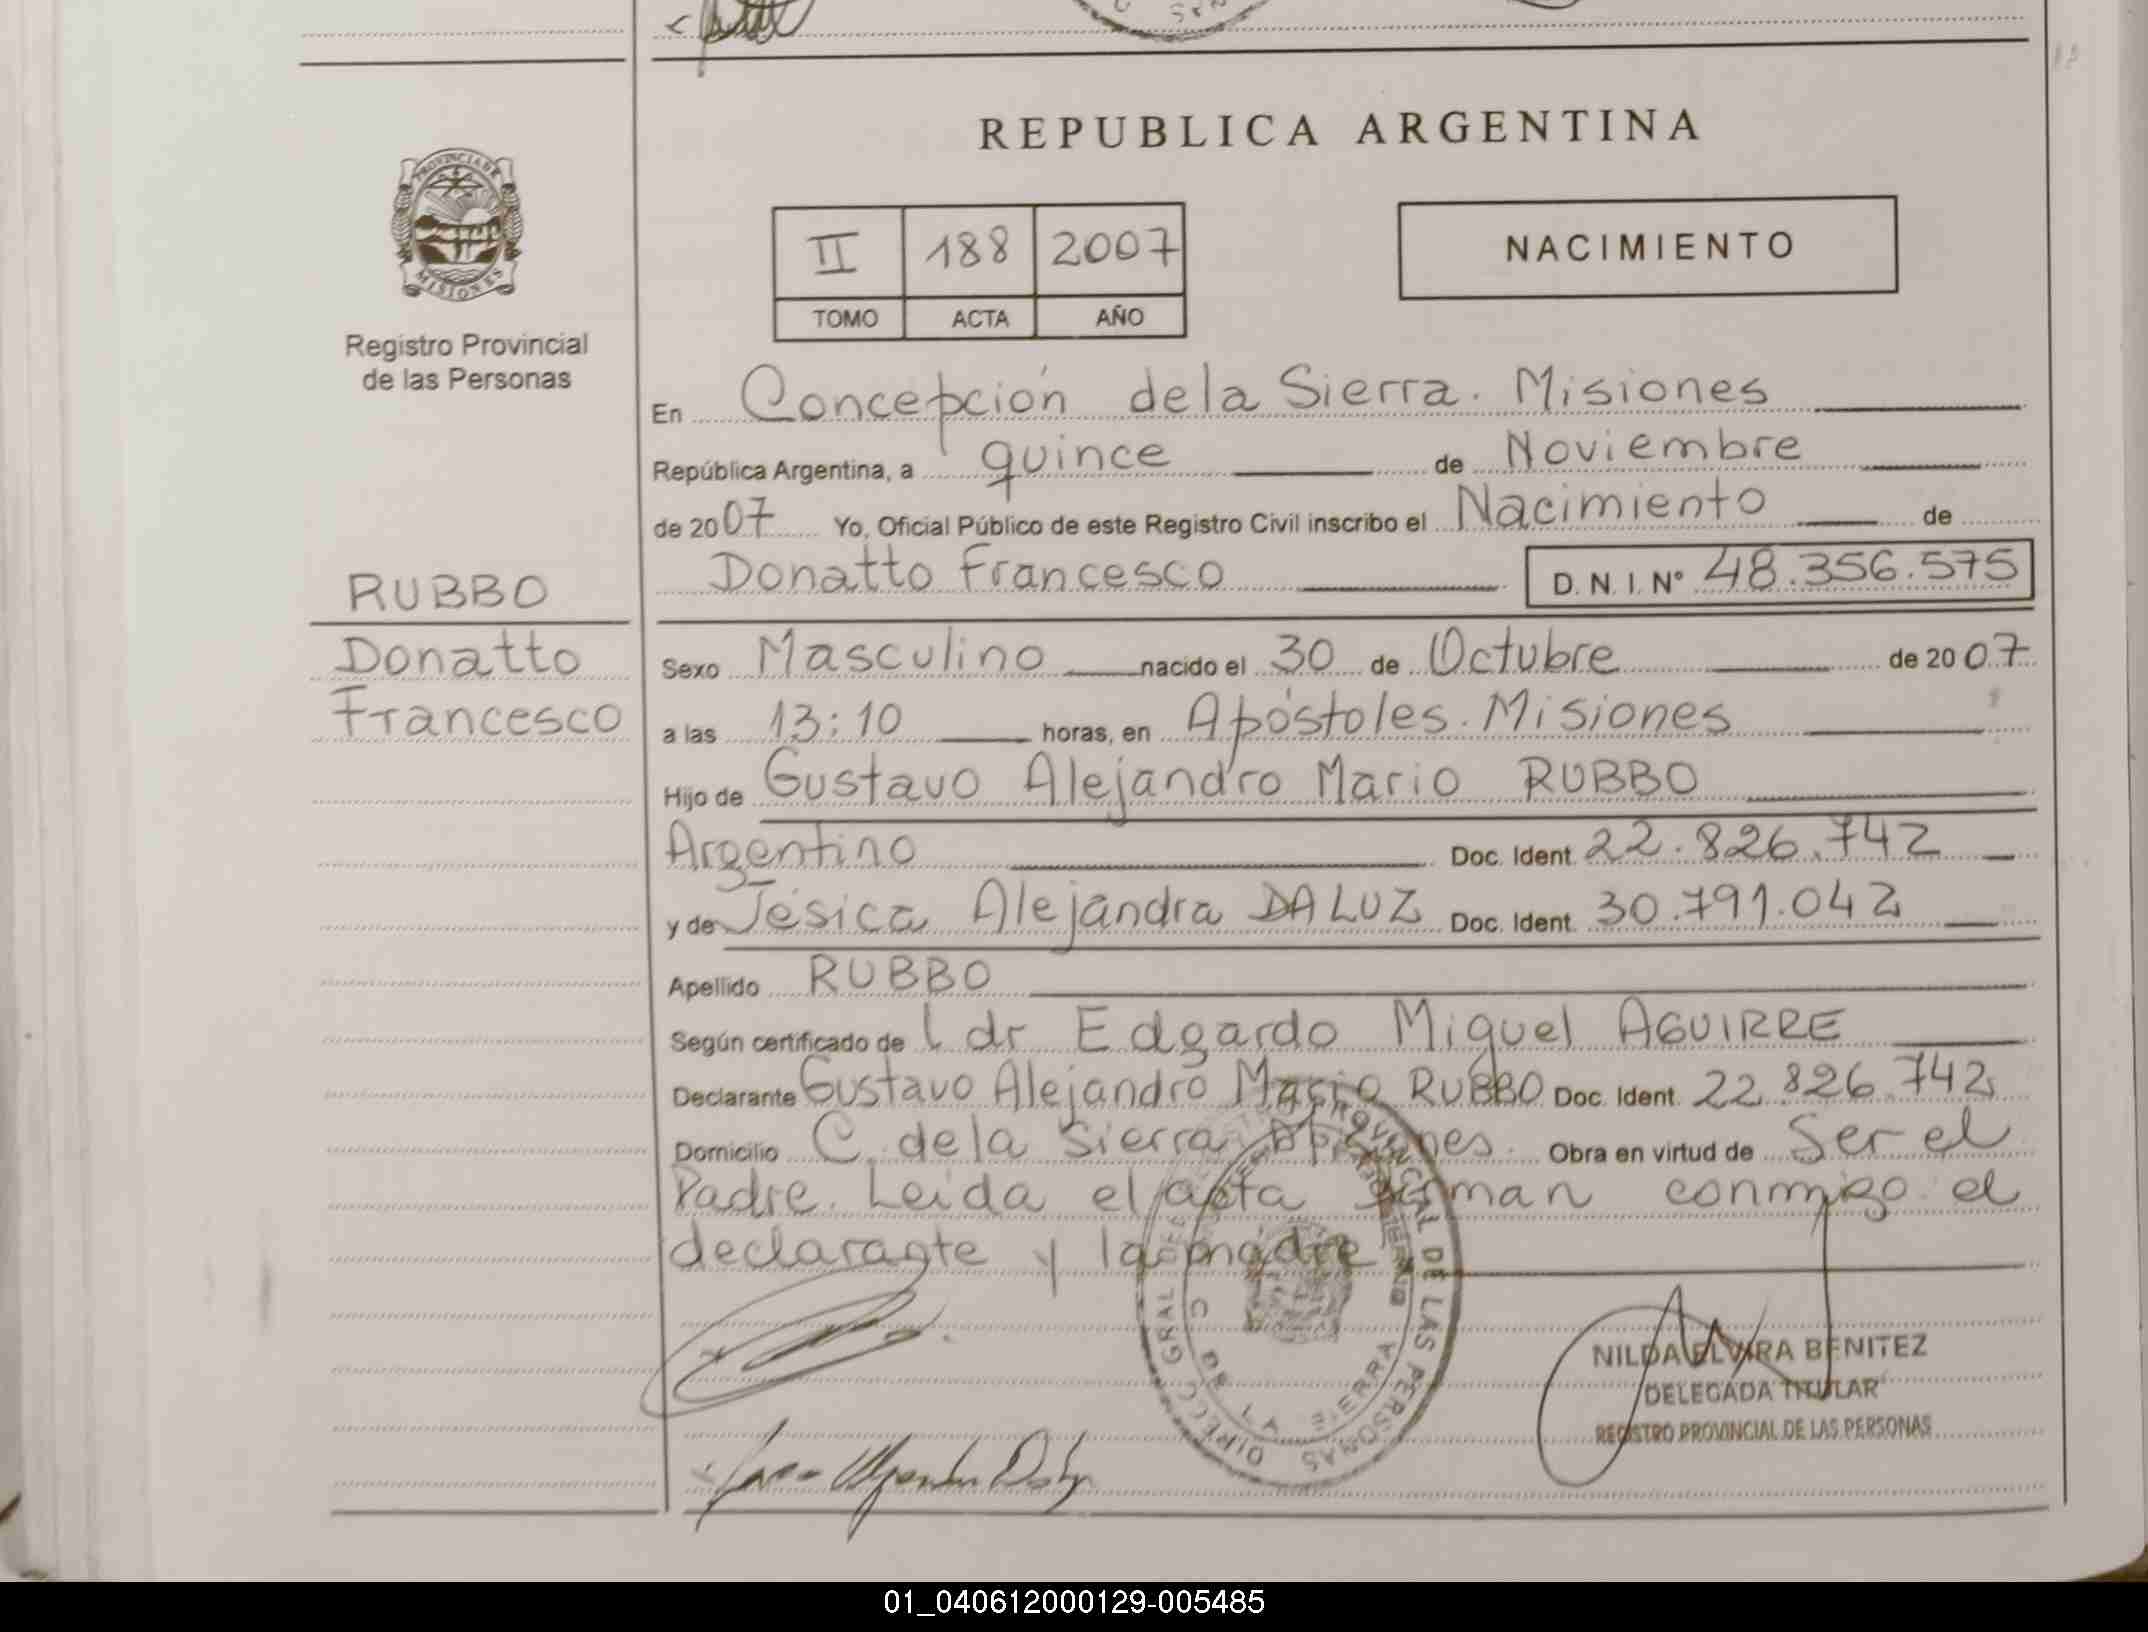 REPUBLICA ARGENTINA
PROVINCIA DE MISIONES
Registro Provincial
de las Personas
II 188 2007
TOMO ACTA AÑO
NACIMIENTO
En Concepción de la Sierra. Misiones
República Argentina, a quince de Noviembre
de 2007 Yo, Oficial Público de este Registro Civil inscribo el Nacimiento de
Donatto Francesco D. N. I. N° 48.356.575
RUBBO
Donatto
Francesco
Sexo Masculino nacido el 30 de Octubre de 2007
a las 13:10 horas, en Apóstoles. Misiones
Hijo de Gustavo Alejandro Mario RUBBO
Argentino Doc. Ident. 22.826.742
y de Jésica Alejandra DA LUZ Doc. Ident. 30.791.042
Apellido RUBBO
Según certificado de l dr Edgardo Miguel AGUIRRE
Declarante Gustavo Alejandro Mario RUBBO Doc. Ident. 22.826.742
Domicilio C. de la Sierra Misiones. Obra en virtud de Ser el
Padre. Leida el acta firman conmigo el
declarante y la madre
DIRECC GRAL DEL REGISTRO PROVINCIAL DE LAS PERSONAS
C DE LA SIERRA
NILDA ELVIRA BENITEZ
DELEGADA TITULAR
REGISTRO PROVINCIAL DE LAS PERSONAS
01_040612000129-005485